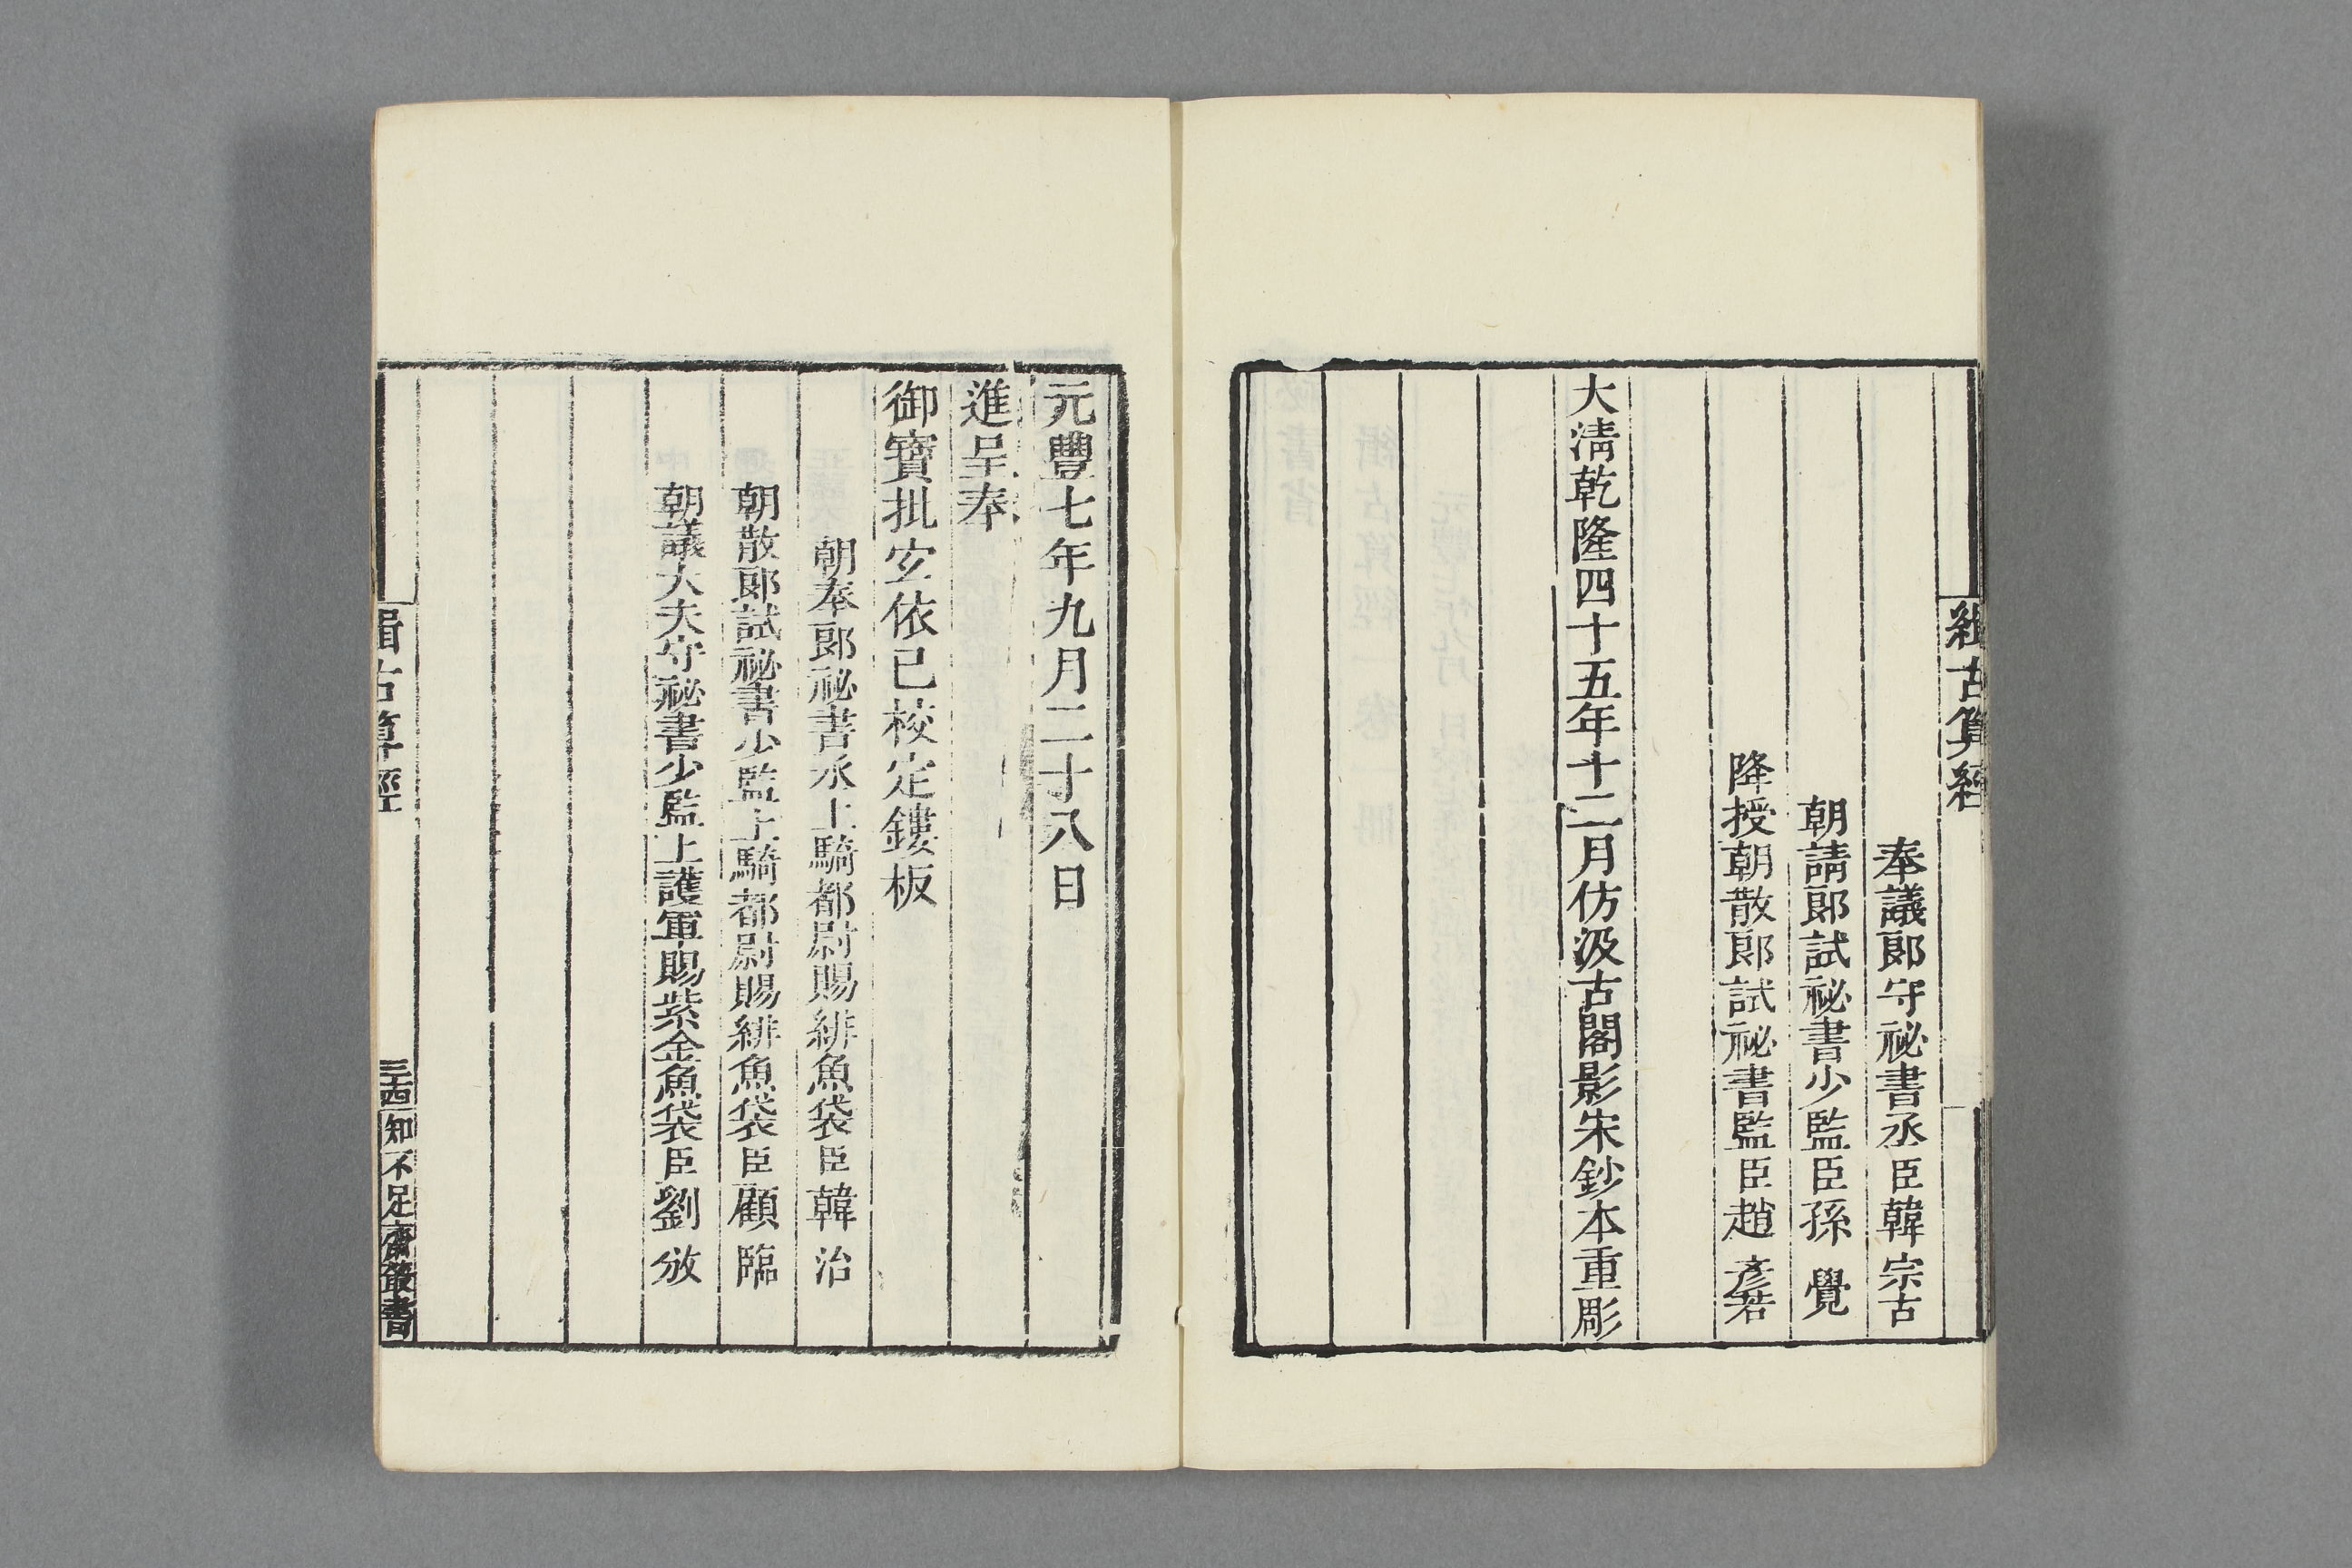 緝古算經
奉議郎守祕書丞臣韓宗古
朝請郎試祕書少監臣孫覺
降授朝散郎試祕書監臣趙彥若
大清乾隆四十五年十二月仿汲古閣影宋鈔本重彫
元豐七年九月二十八日
進呈奉
御寶批宐依已校定鏤板
朝奉郎祕書丞上騎都尉賜緋魚袋臣韓治
朝散郎試祕書少監上騎都尉賜緋魚袋臣顧臨
朝議大夫守祕書少監上護軍賜紫金魚袋臣劉攽
緝古算經
知不足齋叢書